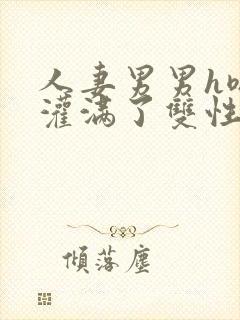 人妻男男h
灌满了雙性
傾落塵